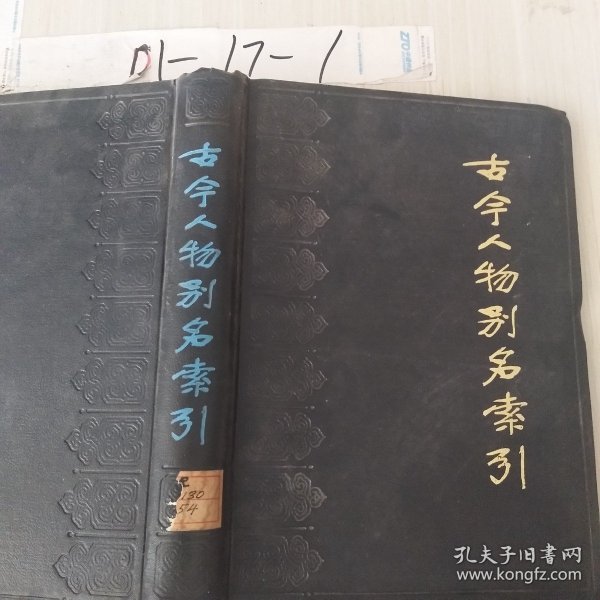 01-17-1
古今人物别名索引
古今人物别名索引
130
54
孔夫子旧书网
www.kongfz.com